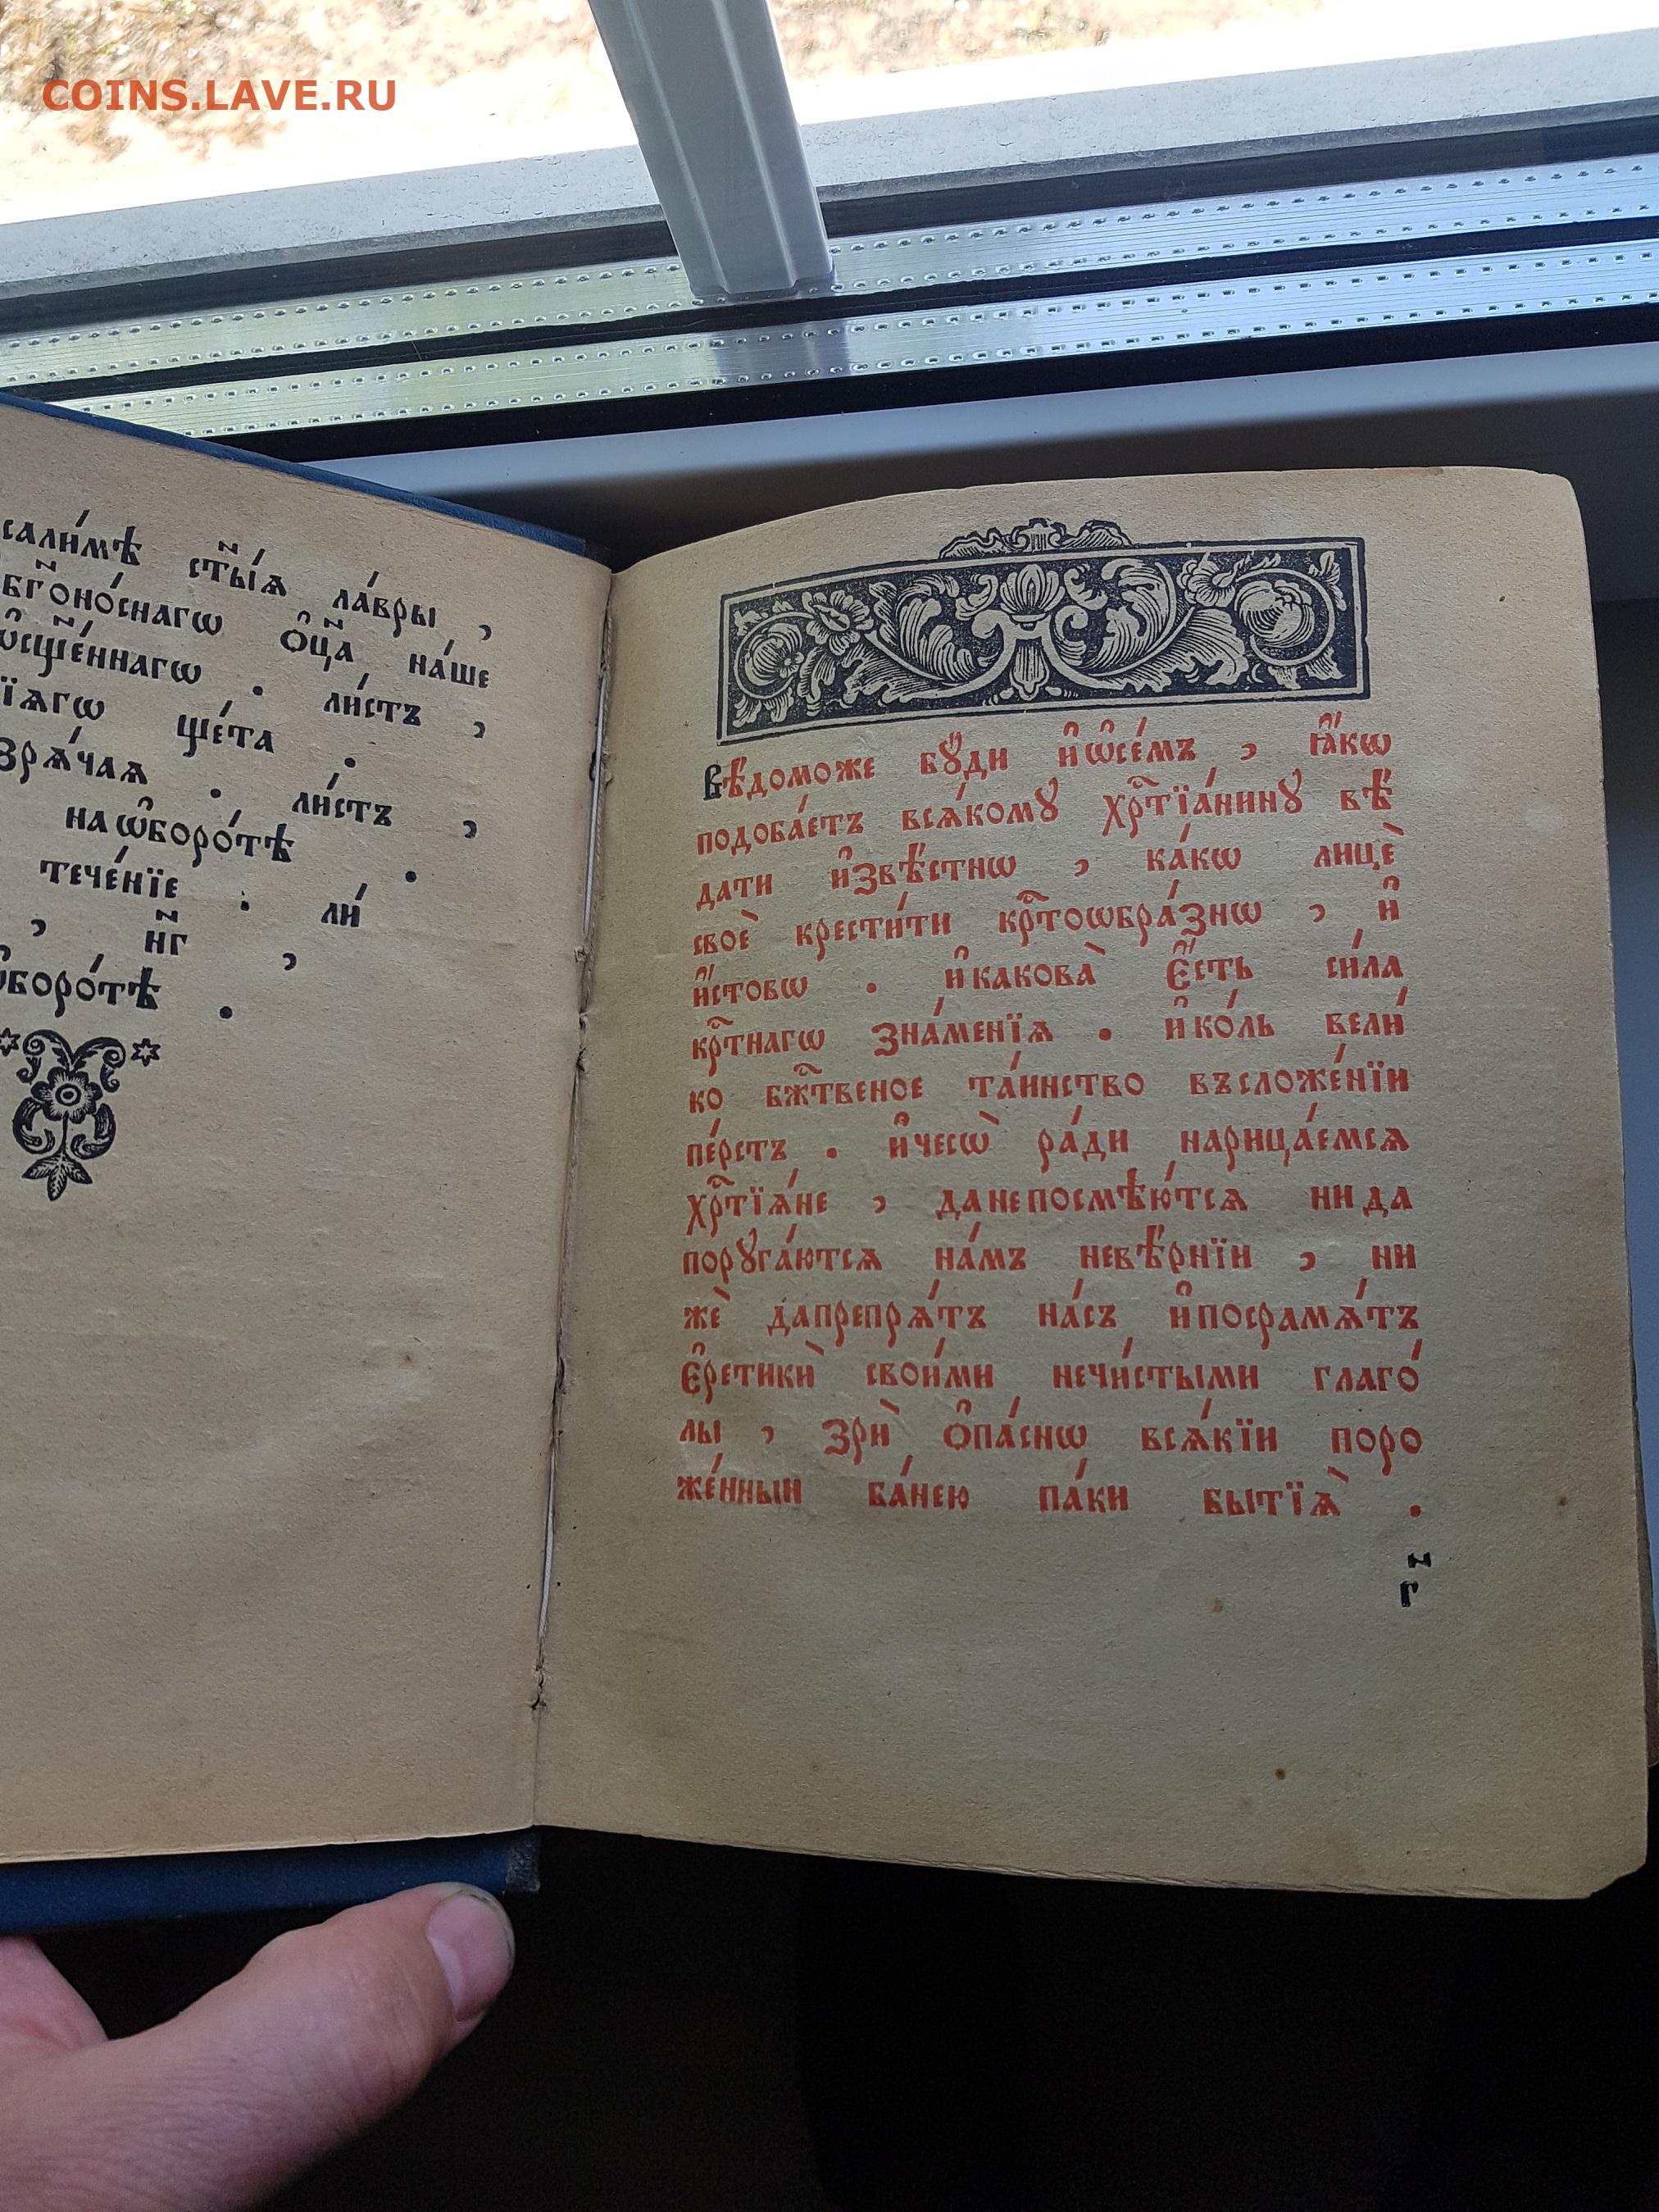 COINS.LAVE.RU
сали́мѣ ст҃ы́ѧ ла́вры ,
бг҃оно́снагѡ ѻ҆ц҃а на́ше
ѡ҆сщ҃е́ннагѡ . ли́стъ ,
їѧгѡ щета .
зрѧ́чаѧ . ли́стъ ,
наѡ҆боро́тѣ .
тече́нїе . ли́
, н҃г ,
ѡ҆боро́тѣ .
Вѣ́доможе бꙋ́ди и҆ѡ҆се́мъ , ꙗ҆́кѡ
подоба́етъ всѧ́комꙋ хрⷭ҇тїа́нинꙋ вѣ́
дати и҆звѣ́стнѡ , ка́кѡ лицѐ
своѐ крести́ти крⷭ҇тоѡбра́знѡ , и҆
и҆́стовѡ . и҆какова̀ є҆́сть си́ла
крⷭ҇тнагѡ зна́менїѧ . и҆ко́ль вели́
ко бжⷭ҇твеное та́инство въсложе́нїи
пе́рстъ . и҆чесѡ̀ ра́ди нарица́емсѧ
хрⷭ҇тїѧ́не , данепосмѣю́тсѧ нида
порꙋга́ютсѧ на́мъ невѣ́рнїи , ни
жѐ дапрепрѧ́тъ на́съ и҆посрамѧ́тъ
є҆ретикѝ свои́ми нечи́стыми глаго́
лы , зрѝ ѻ҆па́снѡ всѧ́кїи поро
же́нныи ба́нею па́ки бытїѧ̀ .
г҃